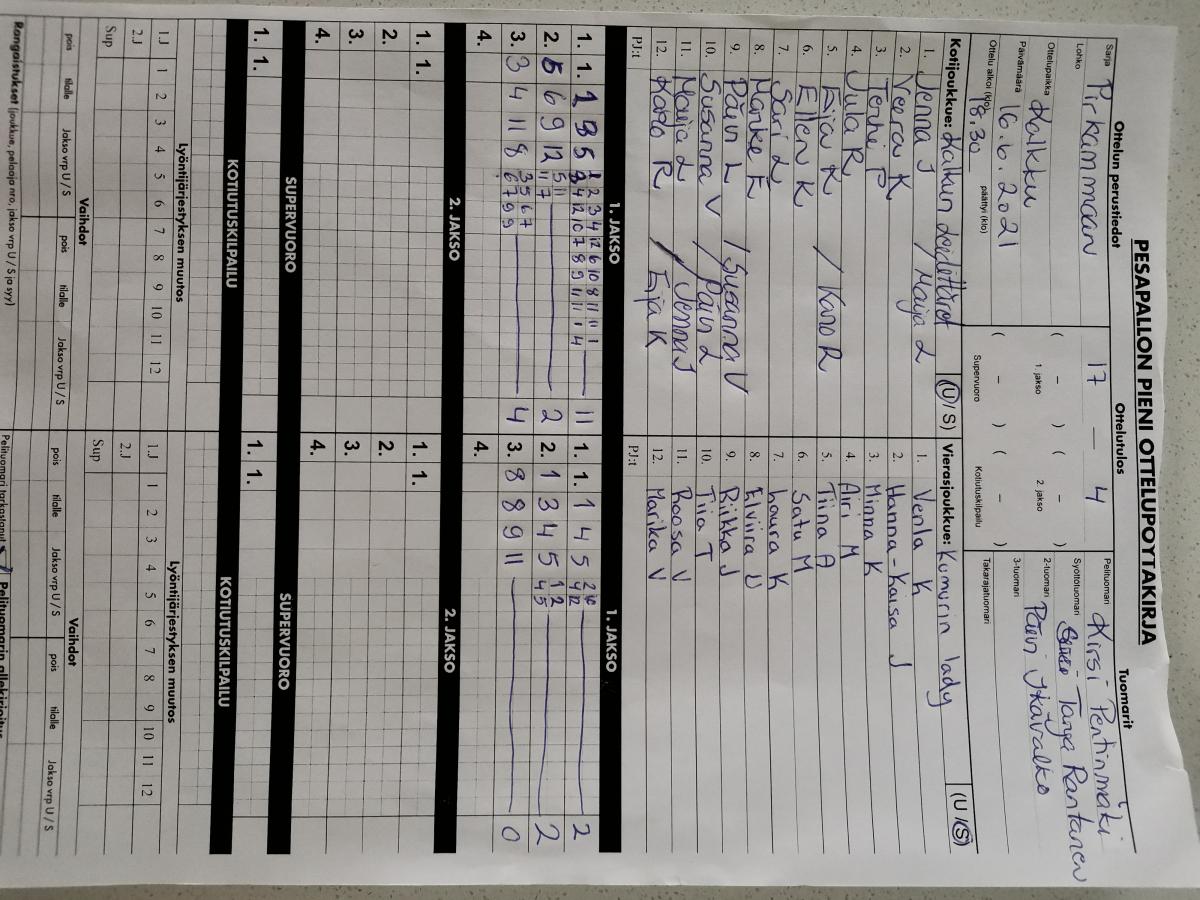 PESÄPALLON PIENI OTTELUPÖYTÄKIRJA
Ottelun perustiedot
Ottelutulos
Tuomarit
Sarja
Pirkanmaan
Lohko
Ottelupaikka
Kalkku
Päivämäärä
16.6.2021
Ottelu alkoi (klo)
18.30
päättyi (klo)
17 — 4
( – ) ( – )
1. jakso 2. jakso
( – ) ( – )
Supervuoro Kotiutuskilpailu
Pelituomari Kirsi Pentinmäki
Syöttötuomari Tanja Rantanen
2-tuomari Päivi Ikävalko
3-tuomari
Takarajatuomari
Kotijoukkue: Kalkun Leedettäret (U/S)
1. Jenna J / Maija L
2. Veera K
3. Terhi P
4. Jula R
5. Eija K / Karo R
6. Ellen K
7. Sari L
8. Marke E
9. Päivi L / Susanna V
10. Susanna V / Päivi L
11. Maija L / Jenna J
12. Karo R / Eija K
PJ:t
Vierasjoukkue: Kumurin lady (U/S)
1. Venla K
2. Hanna-Kaisa J
3. Minna K
4. Airi M
5. Tiina A
6. Satu M
7. Laura K
8. Elviira U
9. Riikka J
10. Tiia T
11. Roosa V
12. Marika V
PJ:t
1. JAKSO
1. 1.
11
2.
6 9 12
2
3. 3 4 11 8
4
4.
1. JAKSO
1. 1. 1 4 5
2
2. 1 3 4 5
2
3. 8 8 9 11
0
4.
2. JAKSO
1. 1.
2.
3.
4.
2. JAKSO
1. 1.
2.
3.
4.
SUPERVUORO
1. 1.
SUPERVUORO
1. 1.
KOTIUTUSKILPAILU
KOTIUTUSKILPAILU
Lyöntijärjestyksen muutos
1.J 1 2 3 4 5 6 7 8 9 10 11 12
2.J
Sup
Lyöntijärjestyksen muutos
1.J 1 2 3 4 5 6 7 8 9 10 11 12
2.J
Sup
Vaihdot
pois tilalle Jakso vrp U / S pois tilalle Jakso vrp U / S
Vaihdot
pois tilalle Jakso vrp U / S pois tilalle Jakso vrp U / S
Rangaistukset (joukkue, pelaaja nro, jakso vrp U / S ja syy)
Pelituomari tarkastanut
Pelituomarin allekirjoitus